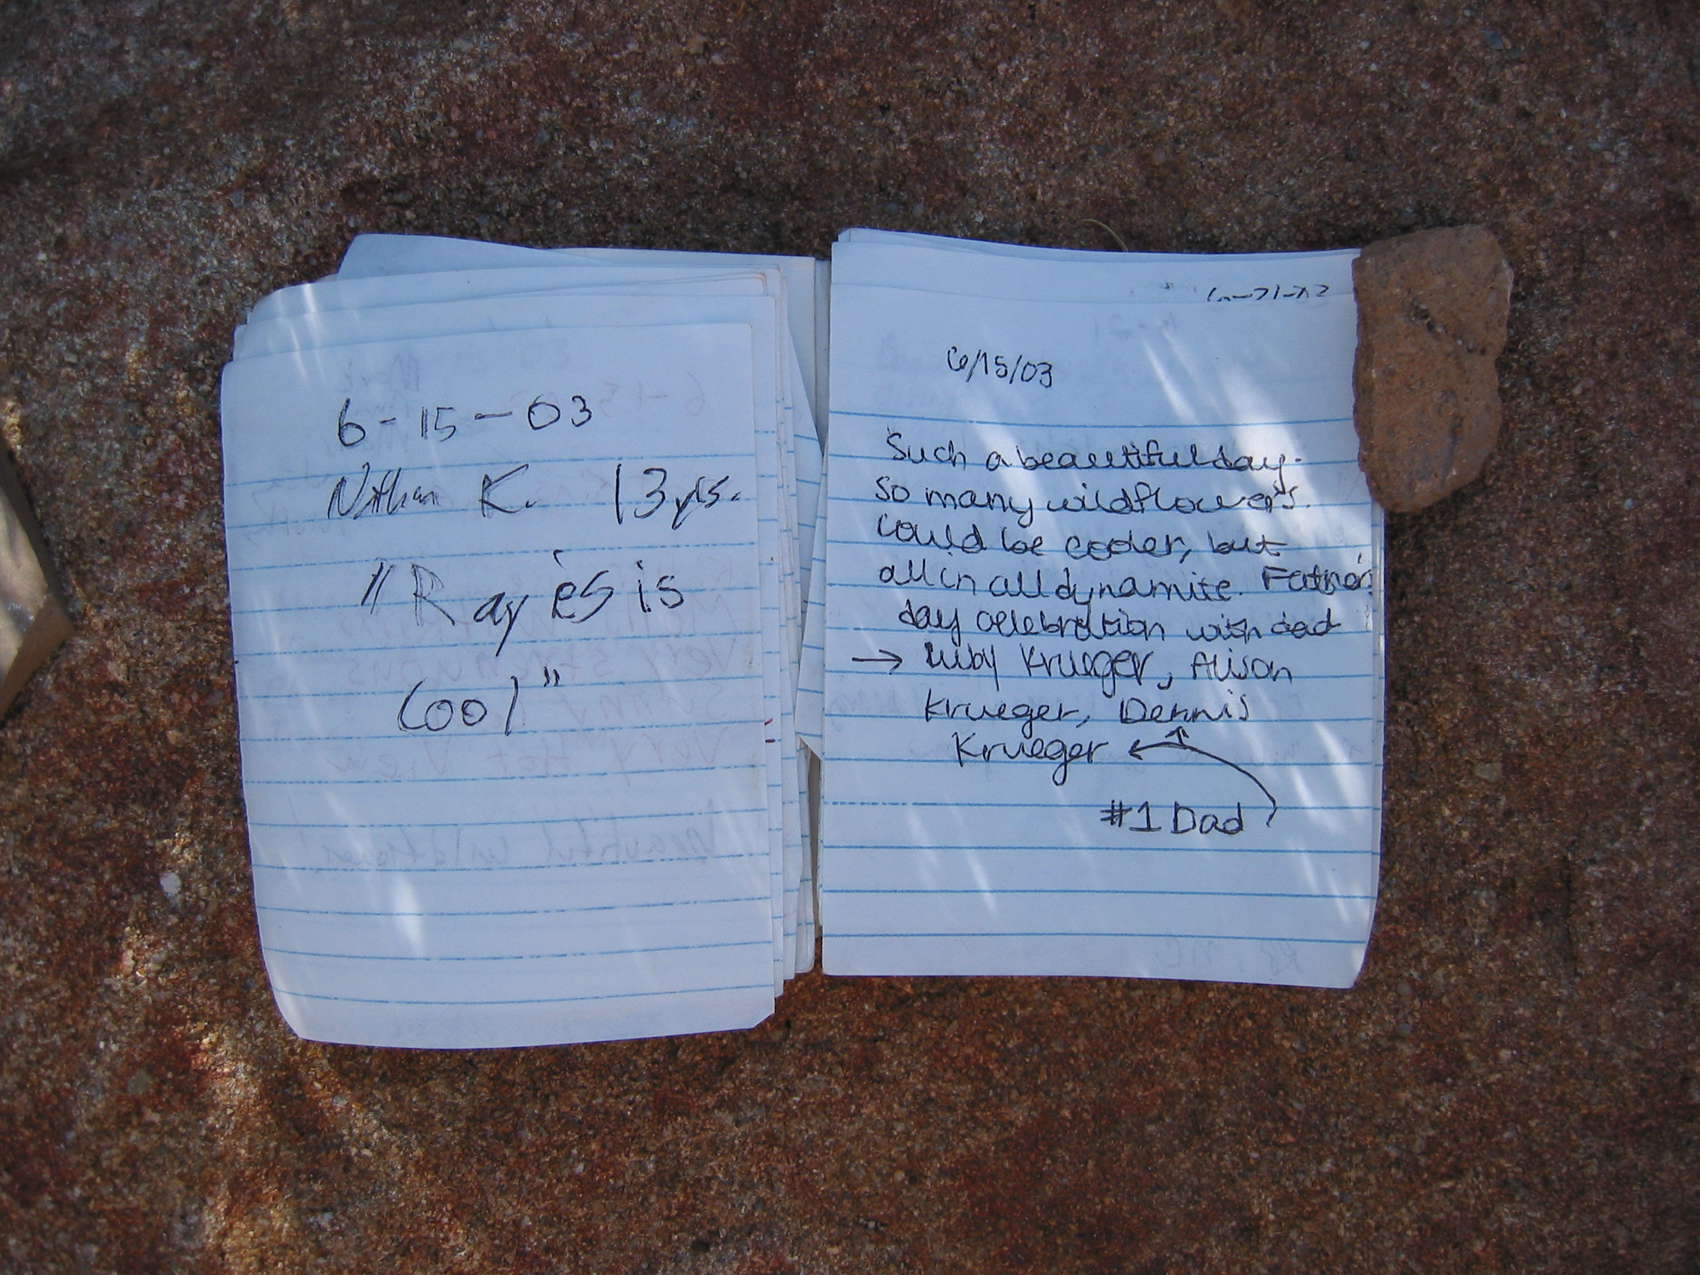 6-15-03
Nathan K. 13 yrs.
"Rayiesis
Cool"
6-21-03
6/15/03
Such a beautiful day.
So many wildflowers.
Could be cooler, but
all in all dynamite. Father's
day celebration with dad
→ Ruby Krueger, Alison
Krueger, Dennis
Krueger ←
#1 Dad